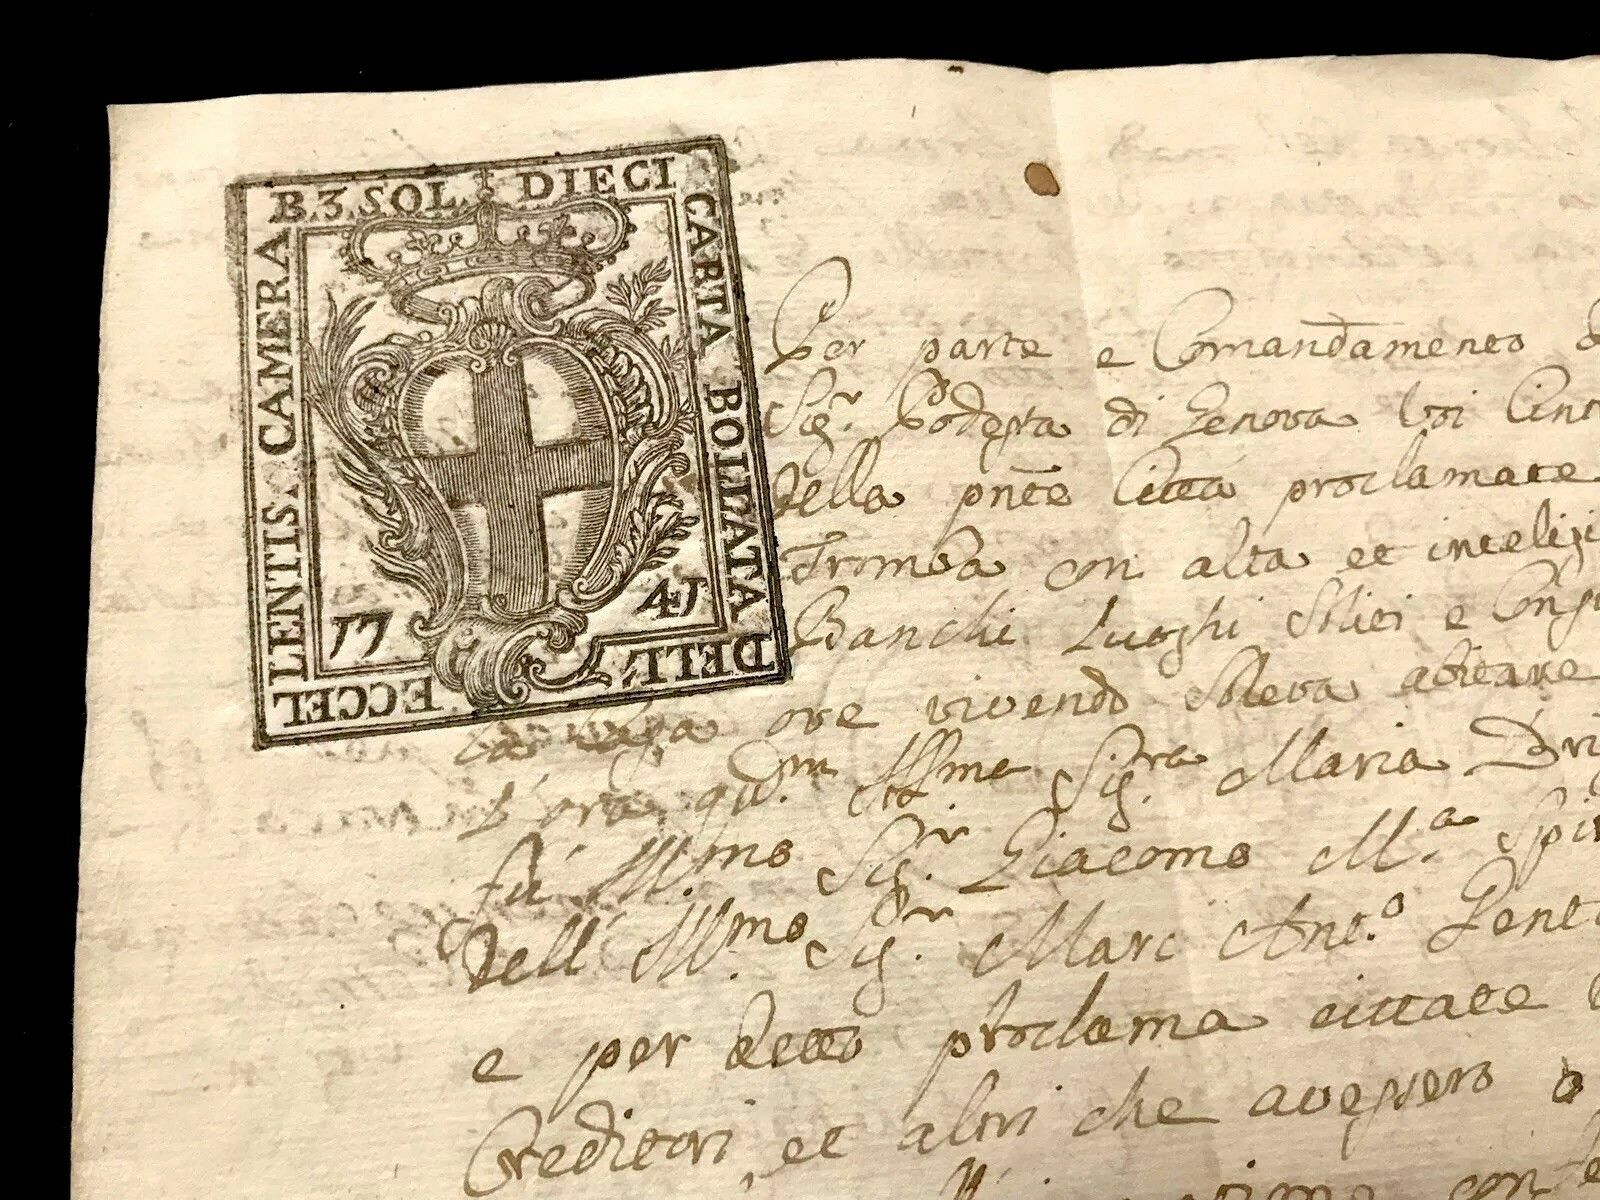 B. 3 SOL. DIECI
CARTA BOLLATA
DELL'
ECCEL
LENTIS. CAMERA
17 41
Per parte e Comandamento
Sig.r Podestà di Genova Voi Cint
della pnte Città proclamate
Tromba con alta et inteligi
Banchi Luoghi soliti e Cons
ove vivendo soleva abitare
l'ora qu.m Ill.ma Sig.ra Maria Bri
fù Ill.mo Sig.r Giacomo M.a Spin
dell Ill.mo Sig.r Marc Ant.o Genti
e per detto proclama cittate
Creditori, et altri che avessero o